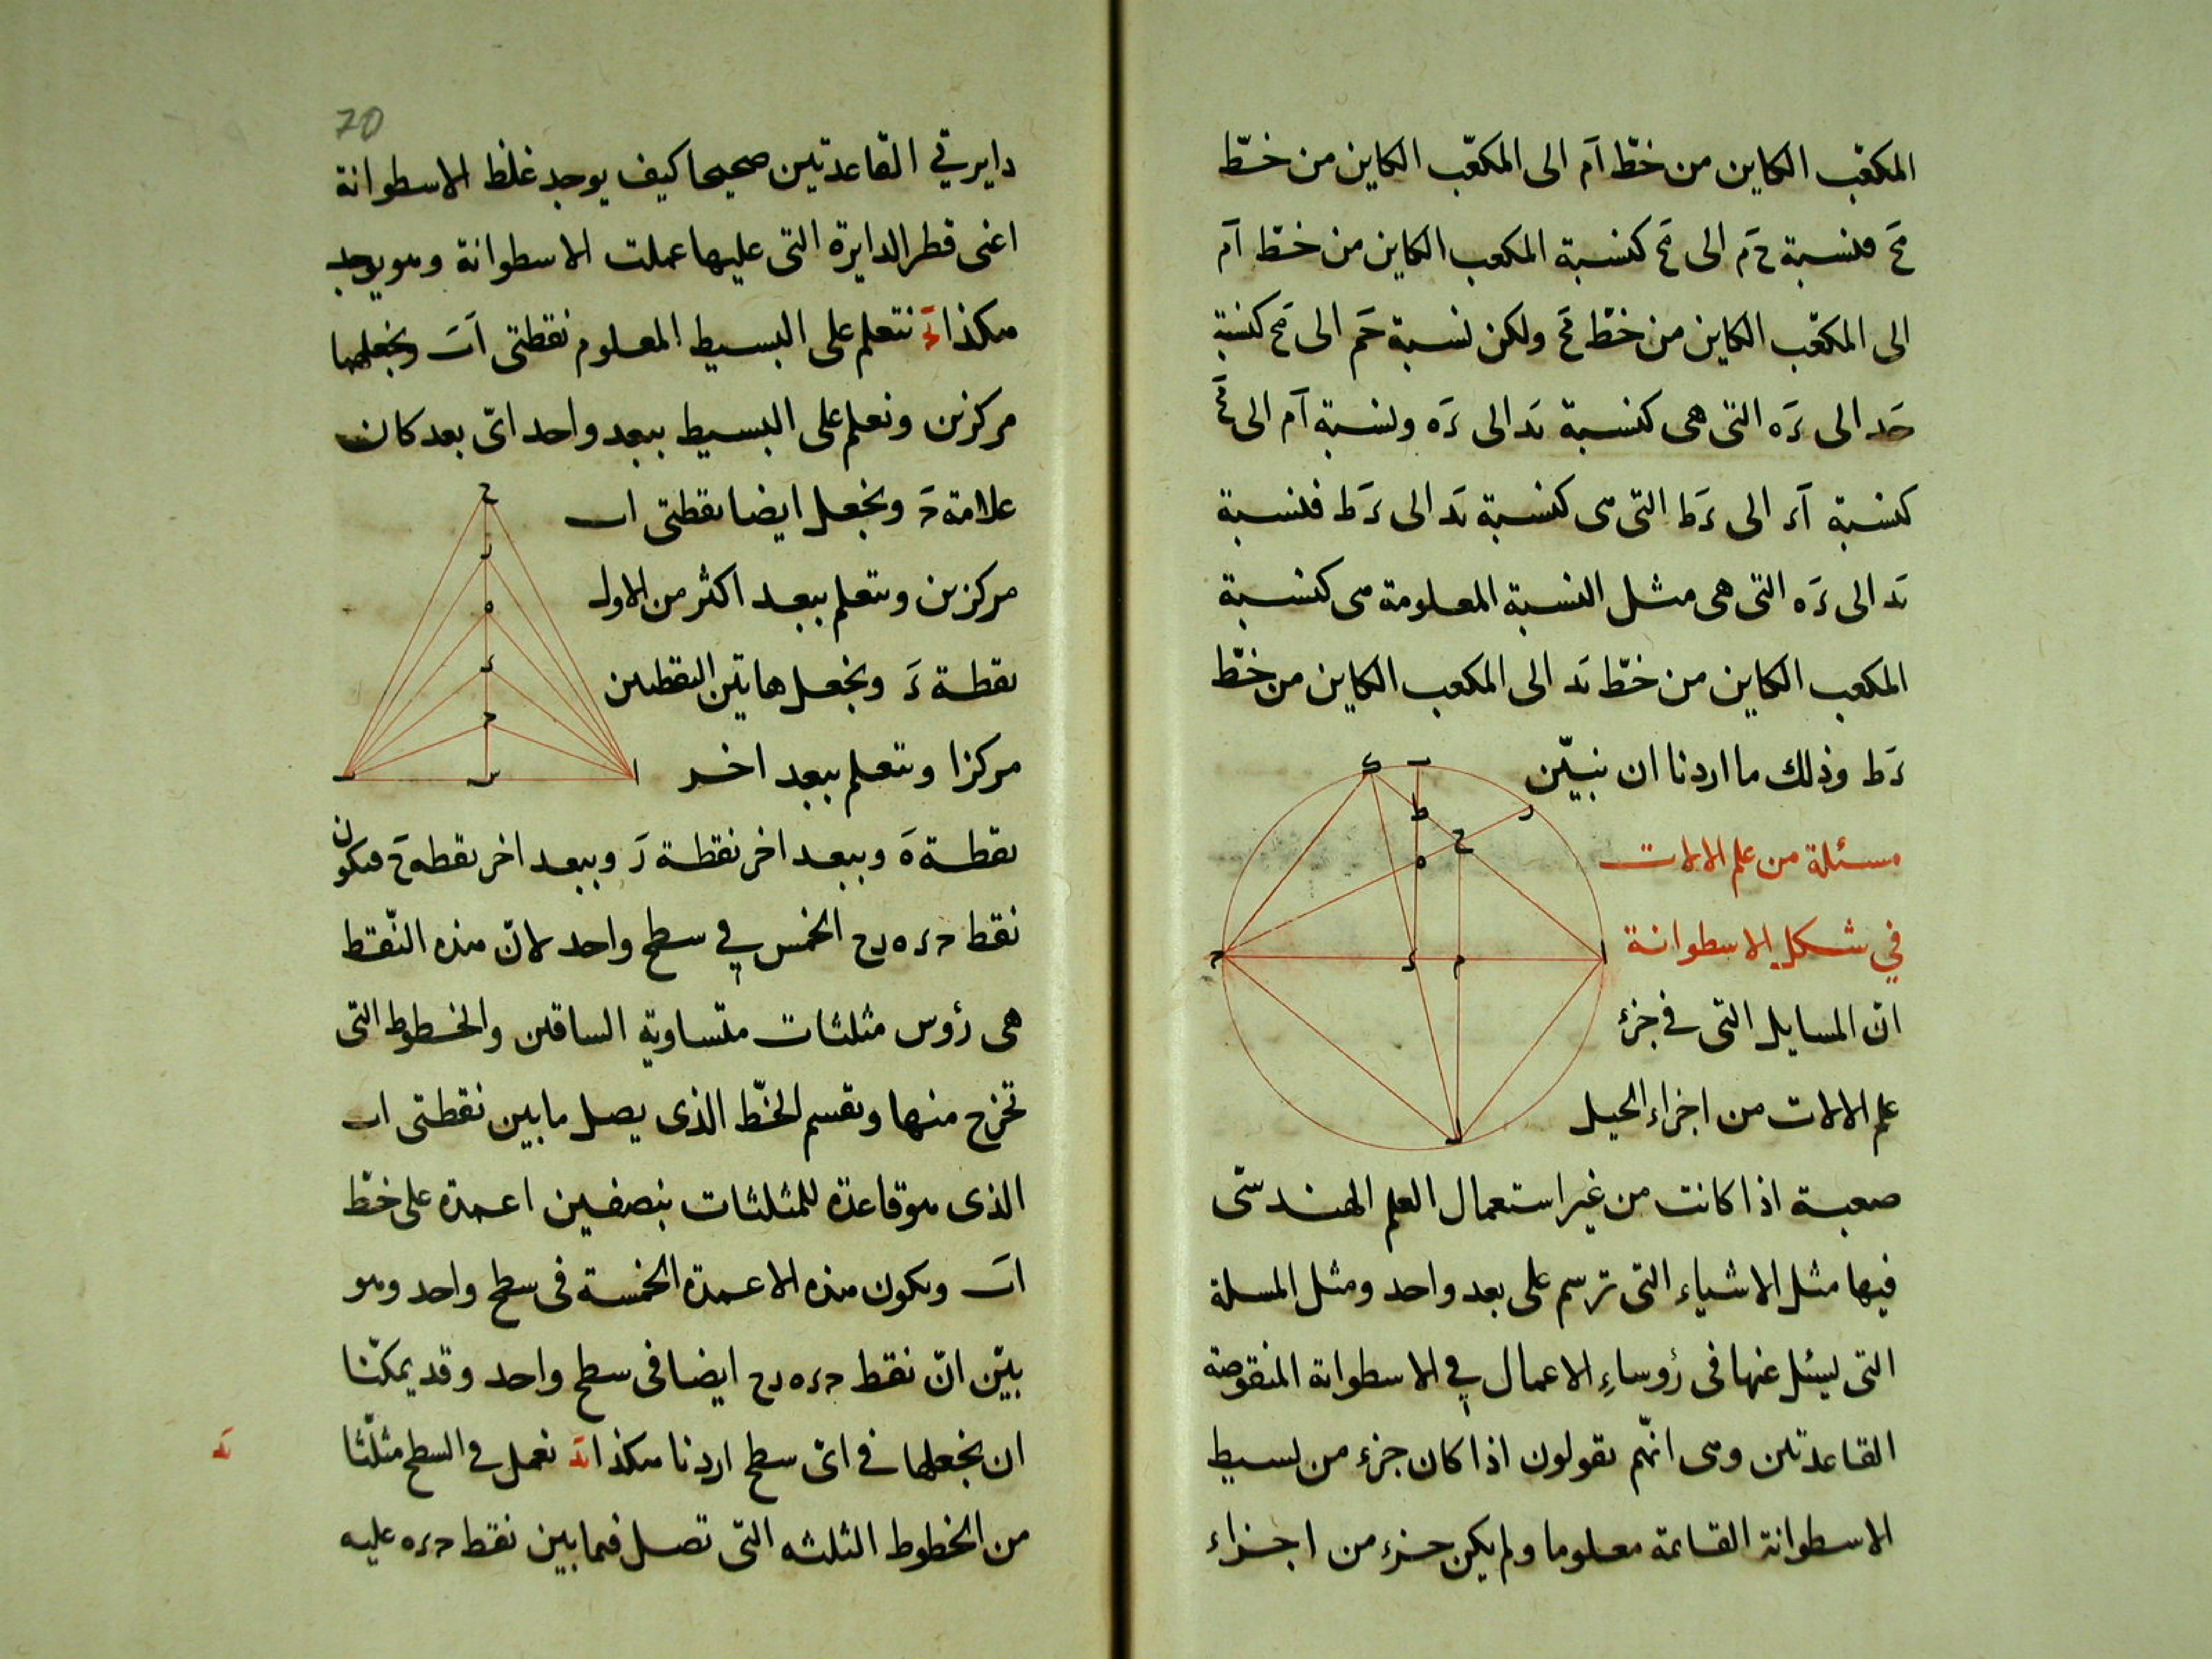 المكعّب الكاين من خطّ اَم الى المكعّب الكاين من خطّ
مَح فنسبة حَ م الى مَح كنسبة المكعب الكاين من خطّ اَم
الى المكعّب الكاين من خطّ مَح ولكن نسبة حَم الى مَح كنسبة
حَد الى دَه التى هى كنسبة ىَد الى دَه ونسبة اَم الى مَح
كنسبة اَد الى دَط التى هى كنسبة ىَد الى دَط فنسبة
ىَد الى دَه التى هى مثل النسبة المعلومة هى كنسبة
المكعب الكاين من خطّ ىَد الى المكعب الكاين من خطّ
دَط وذلك ما اردنا ان نبيّن
ى ب
ط ر
ح
ه
مسئلة من علم الالات
في شكل الاسطوانة
ا م د ح
انّ المسايل التى فى جزء
علم الالات من اجزاء الحيل
ل
صعبة اذا كانت من غير استعمال العلم الهندسّى
فيها مثل الاشياء التى ترسم على بعد واحد ومثل المسلة
التى ليسئل عنها فى رؤساءِ الاعمال في الاسطوانة المنقوصة
القاعدتين وهى انّهم يقولون اذا كان جزء من بسيط
الاسطوانة القائمة معلوما ولم يكن جزء من اجزاء
70
دايرتي القاعدتين صحيحا كيف يوجد غلظ الاسطوانة
اعنى قطر الدايرة التى عليها عملت الاسطوانة وهو يوجد
هكذا نتعلم على البسيط المعلوم نقطتى اَب ونجعلهما
مركزين ونعلم على البسيط ببعد واحد اىّ بعد كان
علامة حَ ونجعل ايضا نقطتى اب
مركزين ونتعلم ببعد اكثر من الاول
نقطة دَ ونجعل هاتين النقطتين
مركزا ونتعلم ببعد اخر
ح
ر
ه
د
ح
ا س ب
نقطة هَ وببعد اخر نقطة رَ وببعد اخر نقطه حَ فيكون
نقط ح د ه ر ح الخمس في سطح واحد لانّ هذه النّقط
هى رؤس مثلثات متساوية الساقين والخطوط التى
تخرج منها وتقسم الخّط الذى يصل ما بين نقطتى اب
الذى هو قاعدة للمثلثات بنصفين اعمدة على خطّ
اَب ويكون هذه الاعمدة الخمسة فى سطح واحد وهو
بيّن انّ نقط ح د ه ر ح ايضا فى سطح واحد وقد يمكنّنا
ان نجعلها فى اىّ سطح اردنا هكذا نعمل فى السطح مثلّثا
من الخطوط الثلثه التى تصل فيما بين نقط ح د ه عليه